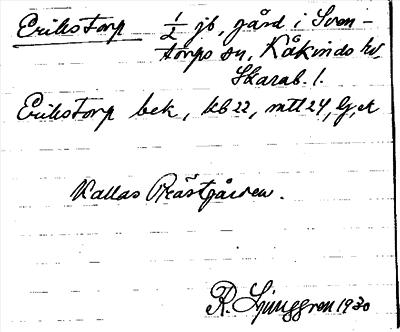 Erikstorp ½ jb, gård i Sven-
torps sn, Kåkinds hd,
Skarab. l.
Erikstorp bek, kb 22, mtl 24, Gek
Kallas Prästgården.
R. Ljunggren 1930